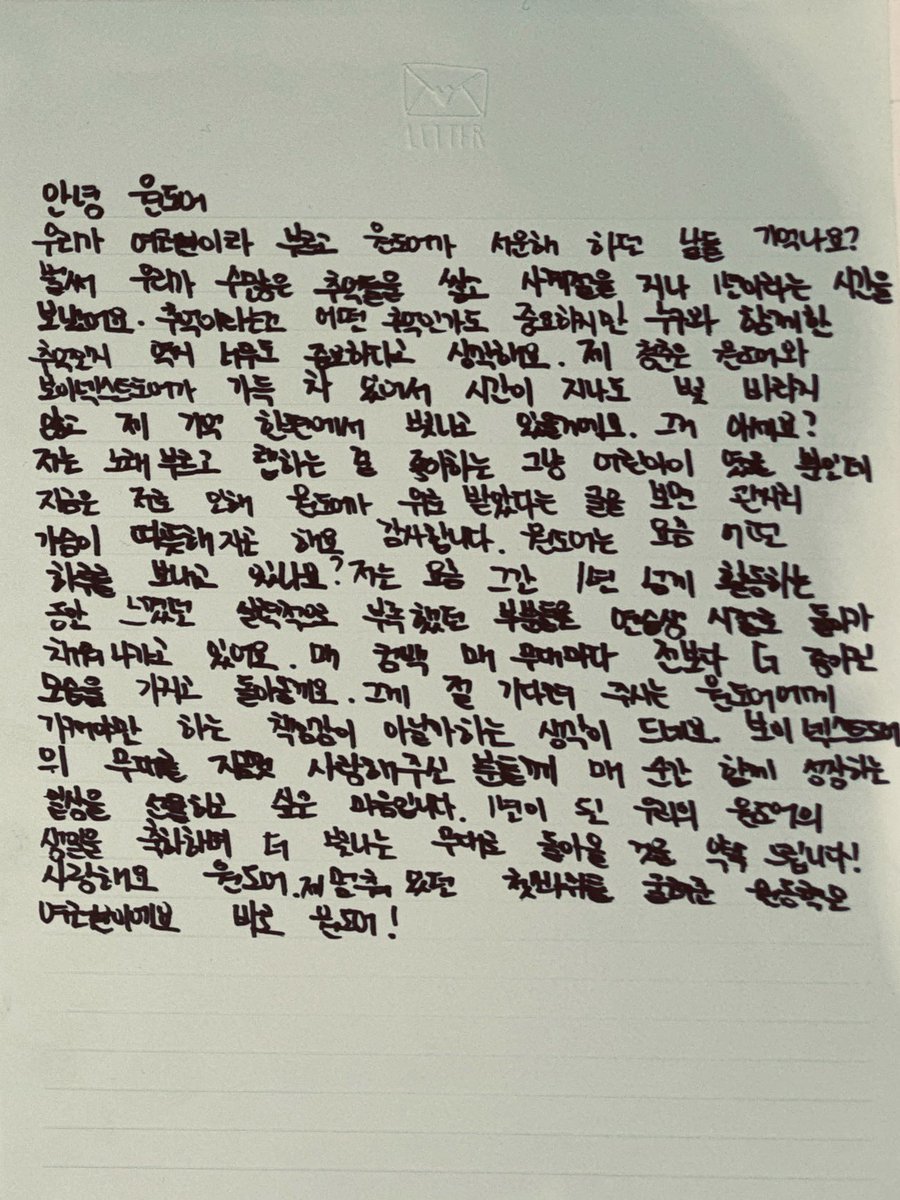 LETTER
안녕 원도어
우리가 여러분이라 부르고 원도어가 서운해 하던 날들 기억나요?
벌써 우리가 수많은 추억들을 쌓고 사계절을 지나 1년이라는 시간을
보냈어요. 추억이라는건 어떤 추억인가도 중요하지만 누구와 함께한
추억인지 역시 너무도 중요하다고 생각해요. 제 청춘은 원도어와
보이넥스트도어가 가득 차 있어서 시간이 지나도 빛 바라지
않고 제 기억 한편에서 빛나고 있을거에요. 그거 아세요?
저는 노래 부르고 랩하는 걸 좋아하는 그냥 어린아이 였을 뿐인데
지금은 저로 인해 원도어가 위로 받았다는 글을 보면 괜시리
가슴이 따뜻해 지곤 해요 감사합니다. 원도어는 요즘 어떤
하루를 보내고 있나요? 저는 요즘 그간 1년 넘게 활동하는
동안 느꼈던 실력적으로 부족했던 부분들을 연습생 시절로 돌아가
채워 나가고 있어요. 매 컴백 매 무대마다 전보다 더 좋아진
모습을 가지고 돌아올게요. 그게 절 기다려 주시는 원도어에게
가져야만 하는 책임감이 아닐까하는 생각이 드네요. 보이넥스트도어
의 무대를 지금껏 사랑해주신 분들께 매 순간 함께 성장하는
일상을 선물하고 싶은 마음입니다. 1년이 된 우리의 원도어의
생일을 축하하며 더 빛나는 무대로 돌아올 것을 약속 드립니다!
사랑해요 원도어. 제 멈춰 있던 첫바퀴를 굴려준 원동력은
여러분이에요 바로 원도어!